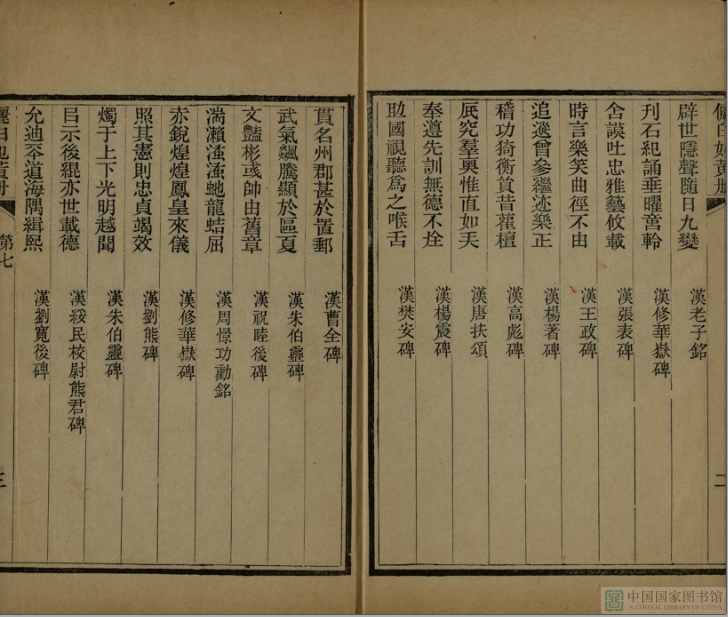 辟世隱聲隨日九變 漢老子銘
刋石紀誦垂曜 軨 漢修華嶽碑
舍談吐忠雅藝攸載 漢張表碑
時言樂笑曲徑不由 漢王政碑
追邈曾參繼迹樂正 漢楊著碑
稽功猗衡貧昔雚檀 漢高彪碑
厎究羣奧惟直如矢 漢唐扶頌
奉遵先訓無德不 漢楊震碑
助國視聽爲之喉舌 漢樊安碑
二
貫名州郡甚於置郵 漢曹全碑
武氣飊騰顯於區夏 漢朱伯靈碑
文豔彬彧帥由舊章 漢祝睦後碑
湍瀨滙滙虵龍蛣屈 漢周憬功勳銘
赤銳煌煌鳳皇來儀 漢修華嶽碑
照其憲則忠貞竭效 漢劉熊碑
燭于上下光明越聞 漢朱伯靈碑
㠯示後緄亦世載德 漢綏民校尉熊君碑
允迪 道海隅緝熙 漢劉寬後碑
第七
三
中国国家图书馆
NATIONAL LIBRARY OF CHINA